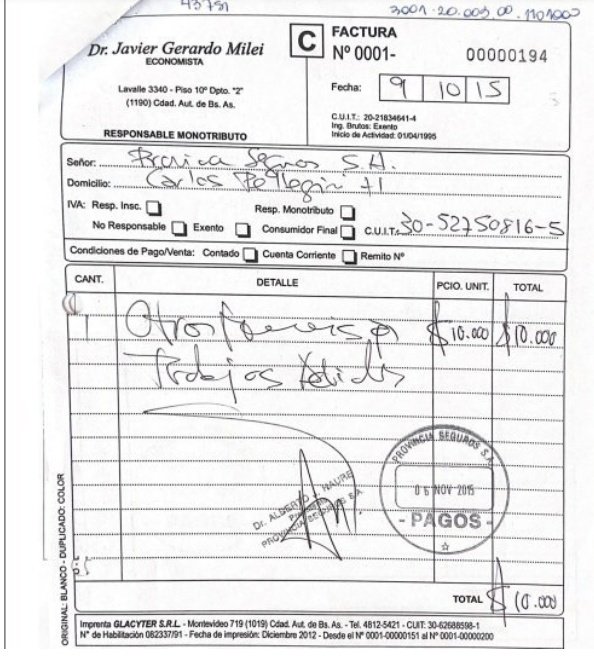 43751
3001-20.003.00.1101000
Dr. Javier Gerardo Milei
ECONOMISTA
Lavalle 3340 - Piso 10º Dpto. "2"
(1190) Cdad. Aut. de Bs. As.
RESPONSABLE MONOTRIBUTO
C
FACTURA
Nº 0001- 00000194
Fecha: 9 10 15
C.U.I.T.: 20-21834641-4
Ing. Brutos: Exento
Inicio de Actividad: 01/04/1995
Señor: Provincia Seguros S.A.
Domicilio: Carlos Pellegrini 71
IVA: Resp. Insc. Resp. Monotributo
No Responsable Exento Consumidor Final C.U.I.T.: 30-52750816-5
Condiciones de Pago/Venta: Contado Cuenta Corriente Remito Nº
CANT. DETALLE PCIO. UNIT. TOTAL
1 Otros $10.000 $10.000
Trabajos
Dr. ALBERTO
PROVINCIA SEGUROS S.A.
PROVINCIA SEGUROS S.A.
06 NOV 2015
- PAGOS -
TOTAL $10.000
ORIGINAL: BLANCO - DUPLICADO: COLOR
Imprenta GLACYTER S.R.L. - Montevideo 719 (1019) Cdad. Aut. de Bs. As. - Tel. 4812-5421 - CUIT: 30-62688598-1
N° de Habilitación 082337/91 - Fecha de impresión: Diciembre 2012 - Desde el Nº 0001-00000151 al Nº 0001-00000200